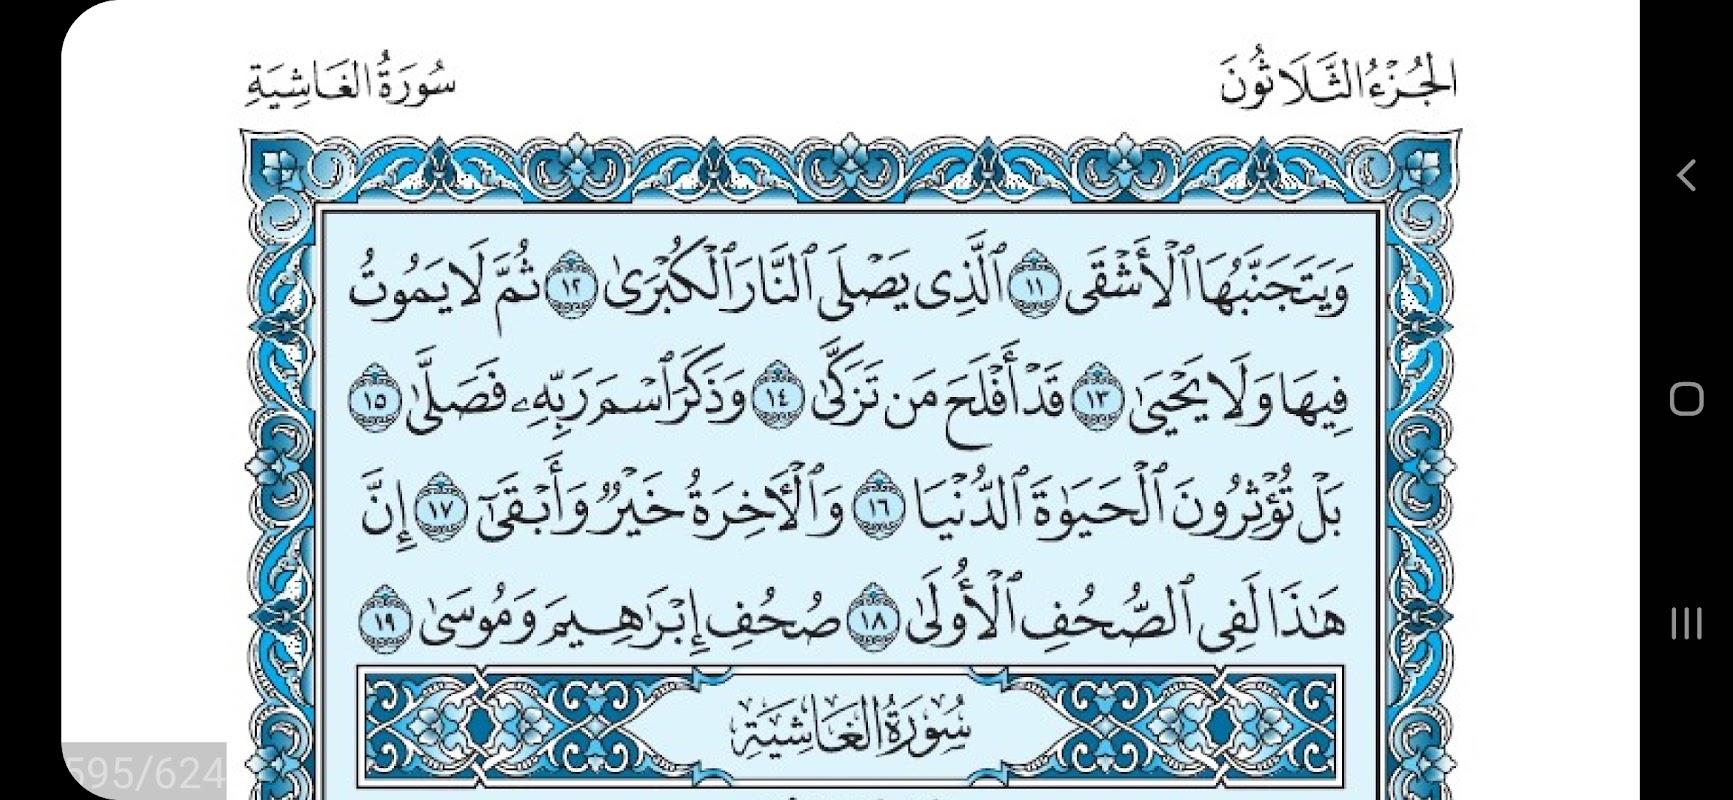 الجُزْءُ الثَّلَاثُونَ
سُورَةُ الغَاشِيَةِ
وَيَتَجَنَّبُهَا ٱلۡأَشۡقَى ١١ ٱلَّذِى يَصۡلَى ٱلنَّارَ ٱلۡكُبۡرَىٰ ١٢ ثُمَّ لَا يَمُوتُ
فِيهَا وَلَا يَحۡيَىٰ ١٣ قَدۡ أَفۡلَحَ مَن تَزَكَّىٰ ١٤ وَذَكَرَ ٱسۡمَ رَبِّهِۦ فَصَلَّىٰ ١٥
بَلۡ تُؤۡثِرُونَ ٱلۡحَيَوٰةَ ٱلدُّنۡيَا ١٦ وَٱلۡأٓخِرَةُ خَيۡرٞ وَأَبۡقَىٰٓ ١٧ إِنَّ
هَٰذَا لَفِى ٱلصُّحُفِ ٱلۡأُولَىٰ ١٨ صُحُفِ إِبۡرَٰهِيمَ وَمُوسَىٰ ١٩
سُورَةُ الغَاشِيَةِ
595/624